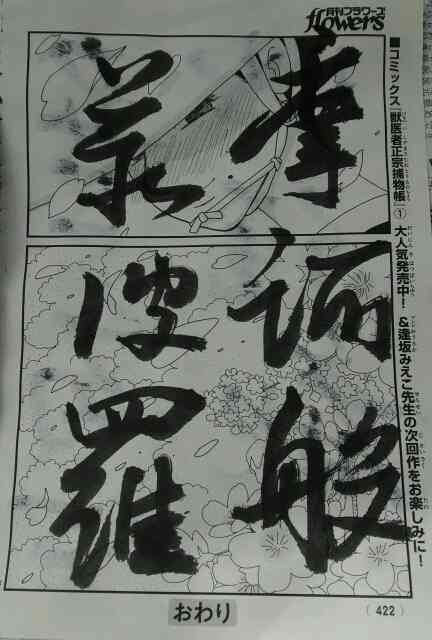 月刊フラワーズ
flowers
■コミックス『獣医者正宗捕物帳』①大人気発売中！&逢坂みえこ先生の次回作をお楽しみに！
摩訶般
若波羅
おわり
(422)